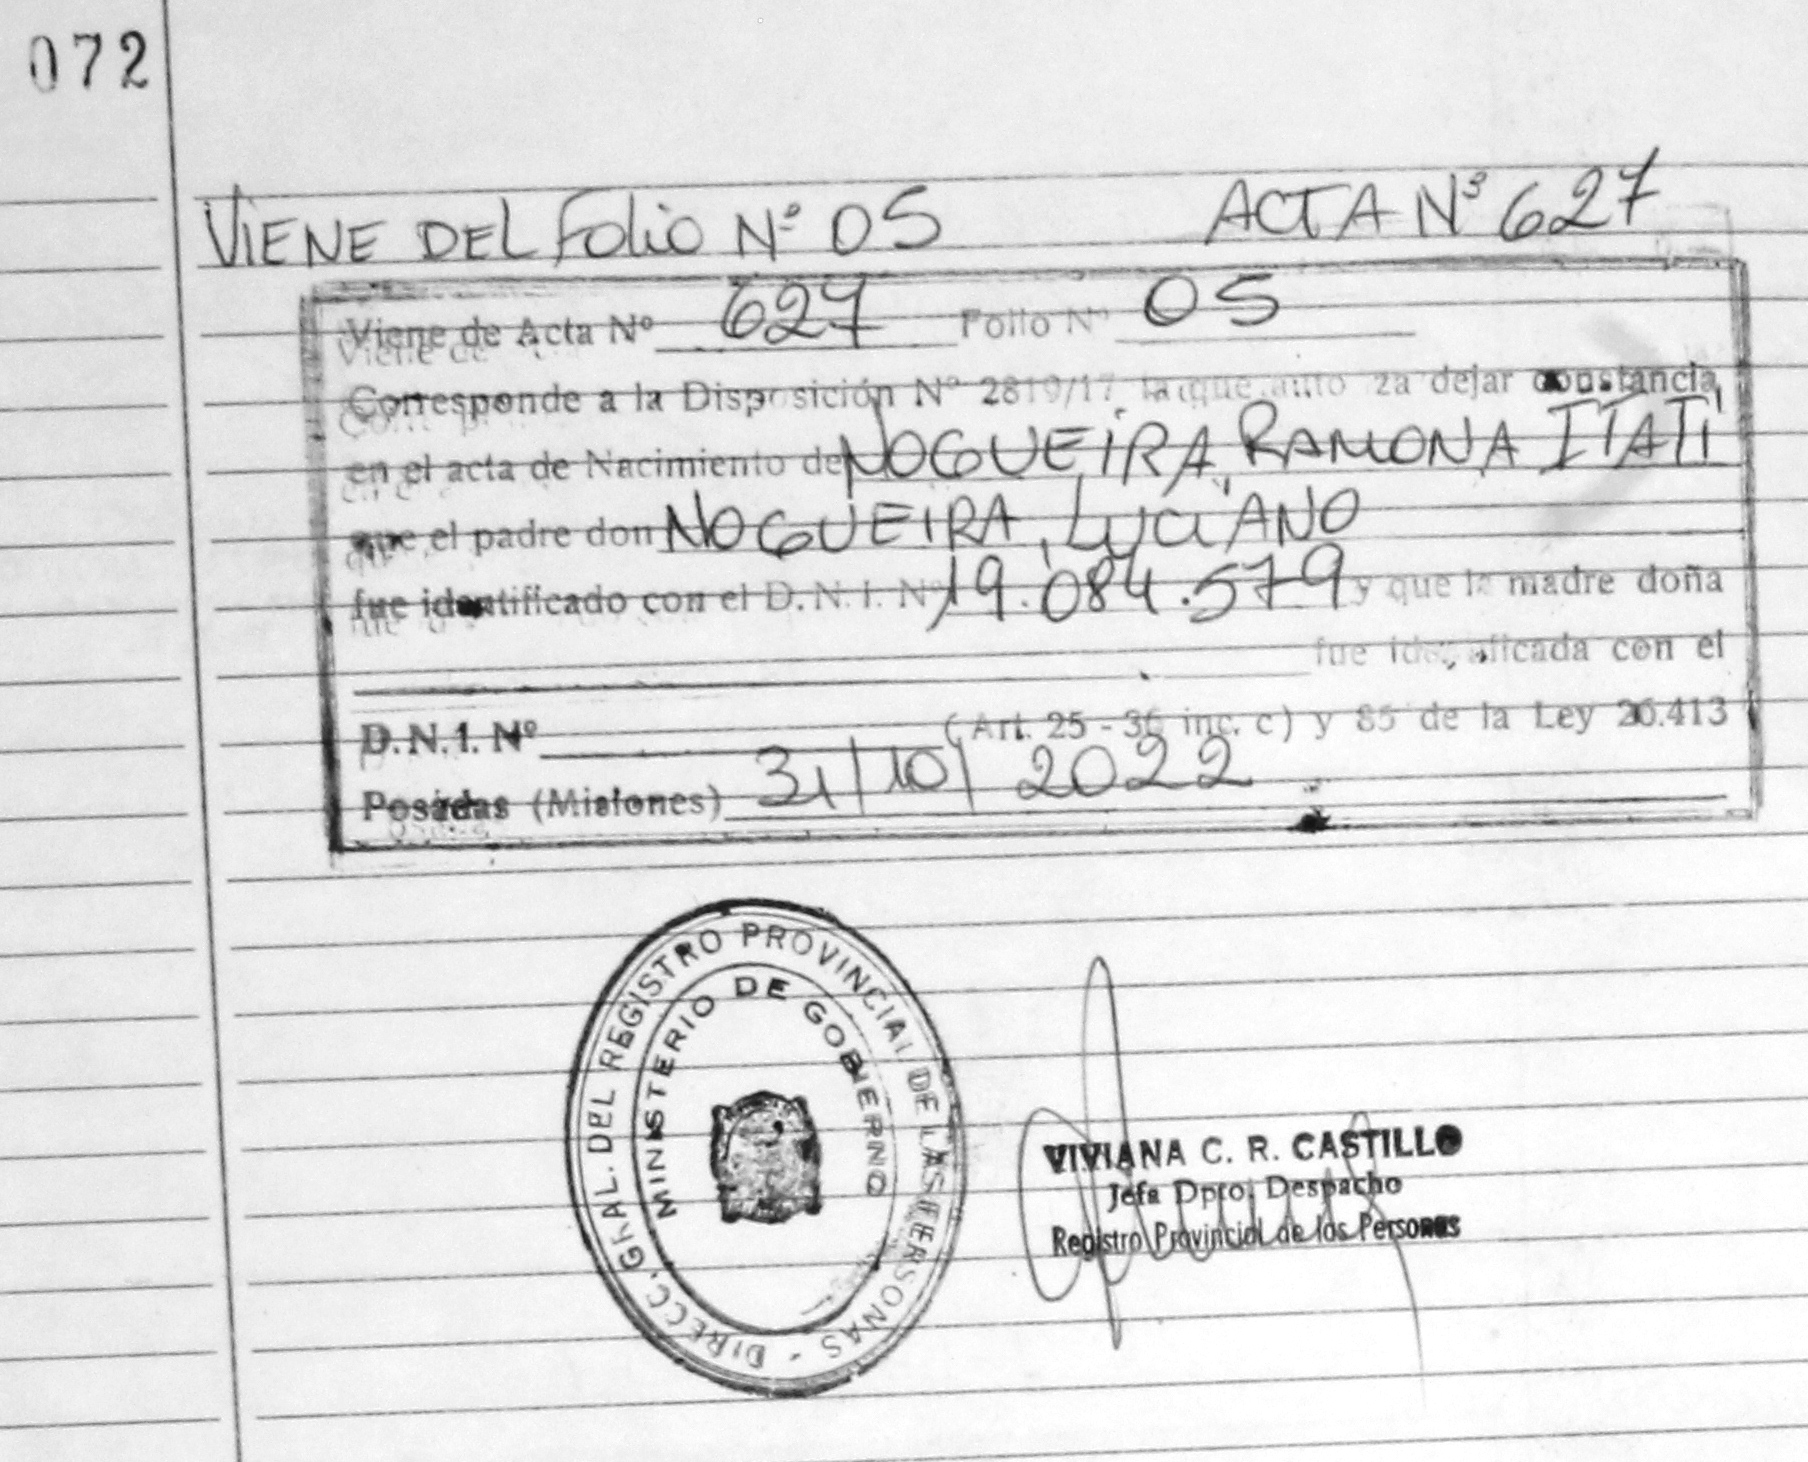 072
VIENE DEL Folio Nº 05 ACTA Nº 627
Viene de Acta Nº 627 Folio Nº 05
Corresponde a la Disposición Nº 2819/17 la que auto za dejar constancia
en el acta de Nacimiento de NOGUEIRA, RAMONA ITATI
que el padre don NOGUEIRA, LUCIANO
fue identificado con el D.N.I. Nº 19.084.579 y que la madre doña
fue identificada con el
D.N.I. Nº (Art. 25 - 36 inc. c) y 85 de la Ley 26.413
Posadas (Misiones) 31/10/2022
DIRECC. GRAL. DEL REGISTRO PROVINCIAL DE LAS PERSONAS -
MINISTERIO DE GOBIERNO
VIVIANA C. R. CASTILLO
Jefa Dpto. Despacho
Registro Provincial de las Personas